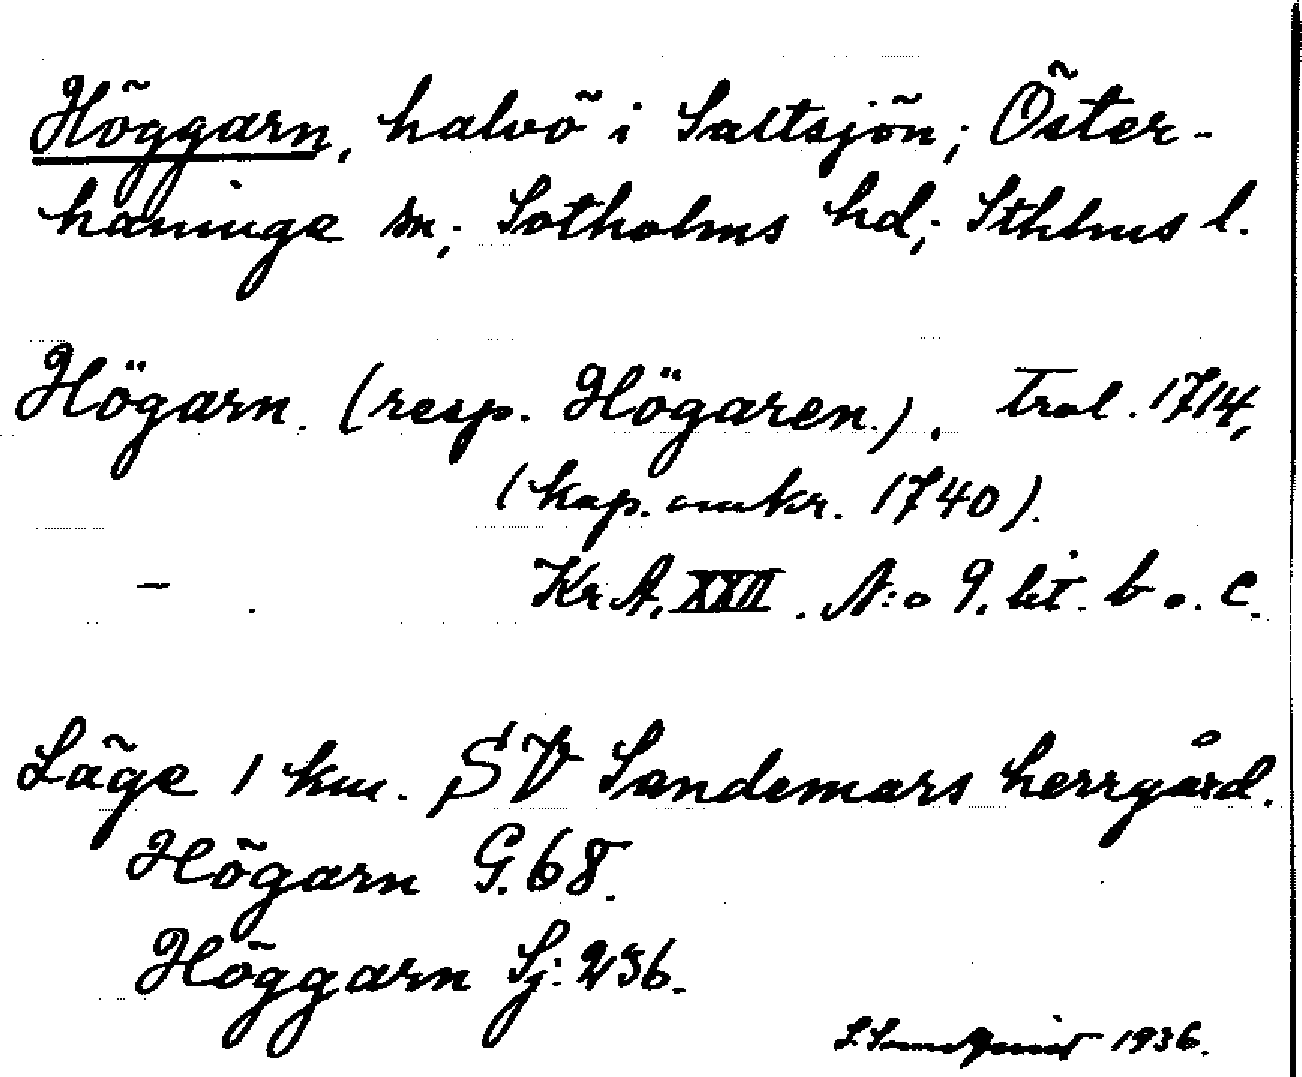 Höggarn, halvö i Saltsjön; Öster-
haninge sn; Sotholms hd; Sthlms l.
Högarn. (resp. Högaren.). Trol. 1714,
(kap. omkr. 1740).
— Kr A. XXII. N:o 9. lit. b o. c.
Läge 1 km. SV Sandemars herrgård.
Högarn G. 68.
Höggarn Sj: 236.
1936.